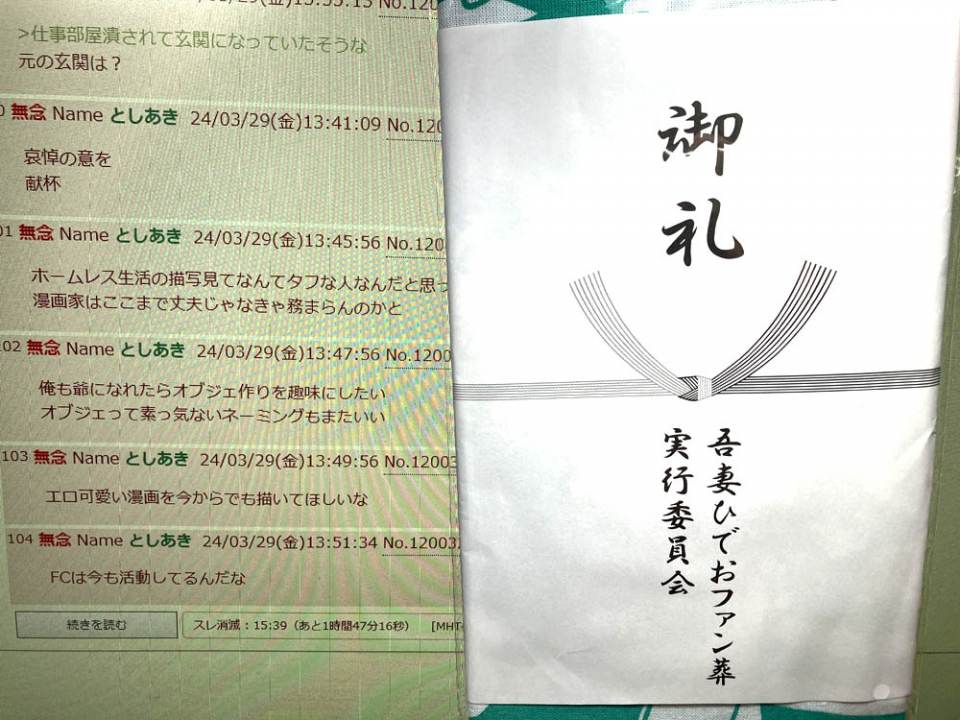 >仕事部屋潰されて玄関になっていたそうな
元の玄関は？
無念 Name としあき 24/03/29(金)13:41:09 No.120
哀悼の意を
献杯
01 無念 Name としあき 24/03/29(金)13:45:56 No.120
ホームレス生活の描写見てなんてタフな人なんだと思っ
漫画家はここまで丈夫じゃなきゃ務まらんのかと
02 無念 Name としあき 24/03/29(金)13:47:56 No.1200
俺も爺になれたらオブジェ作りを趣味にしたい
オブジェって素っ気ないネーミングもまたいい
103 無念 Name としあき 24/03/29(金)13:49:56 No.12003
エロ可愛い漫画を今からでも描いてほしいな
104 無念 Name としあき 24/03/29(金)13:51:34 No.12003
FCは今も活動してるんだな
続きを読む
スレ消滅：15:39（あと1時間47分16秒） [MHT
御礼
吾妻ひでおファン葬
実行委員会